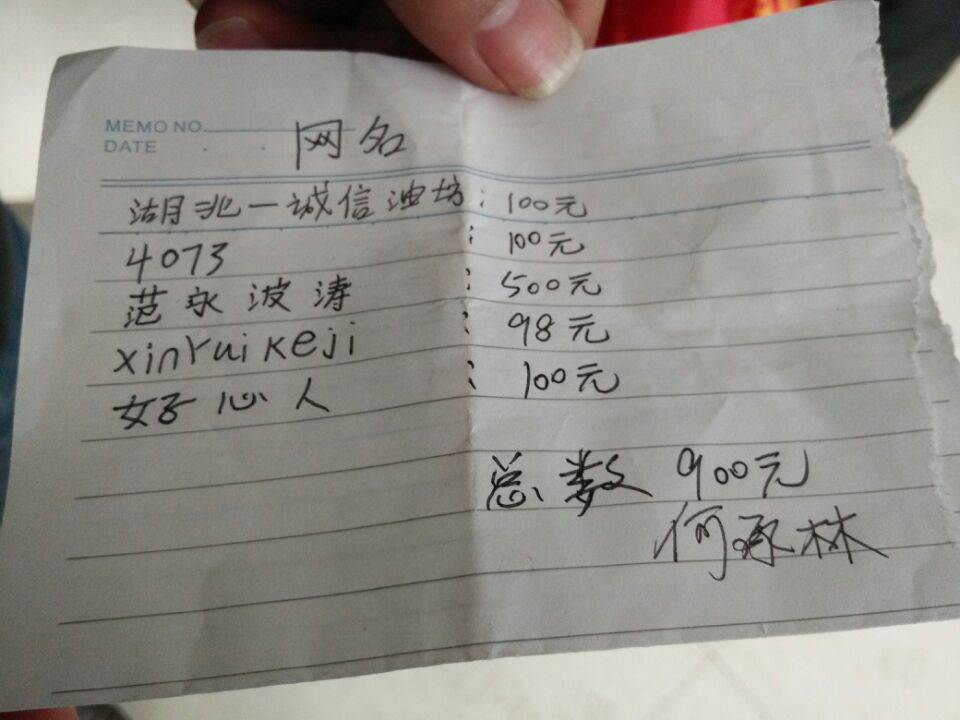 MEMO NO.
DATE . .
网名
湖兆一诚信油坊:100元
4073 : 100元
范永波涛 : 500元
xinYuikeji : 98元
好心人 : 100元
总数 900元
何承林